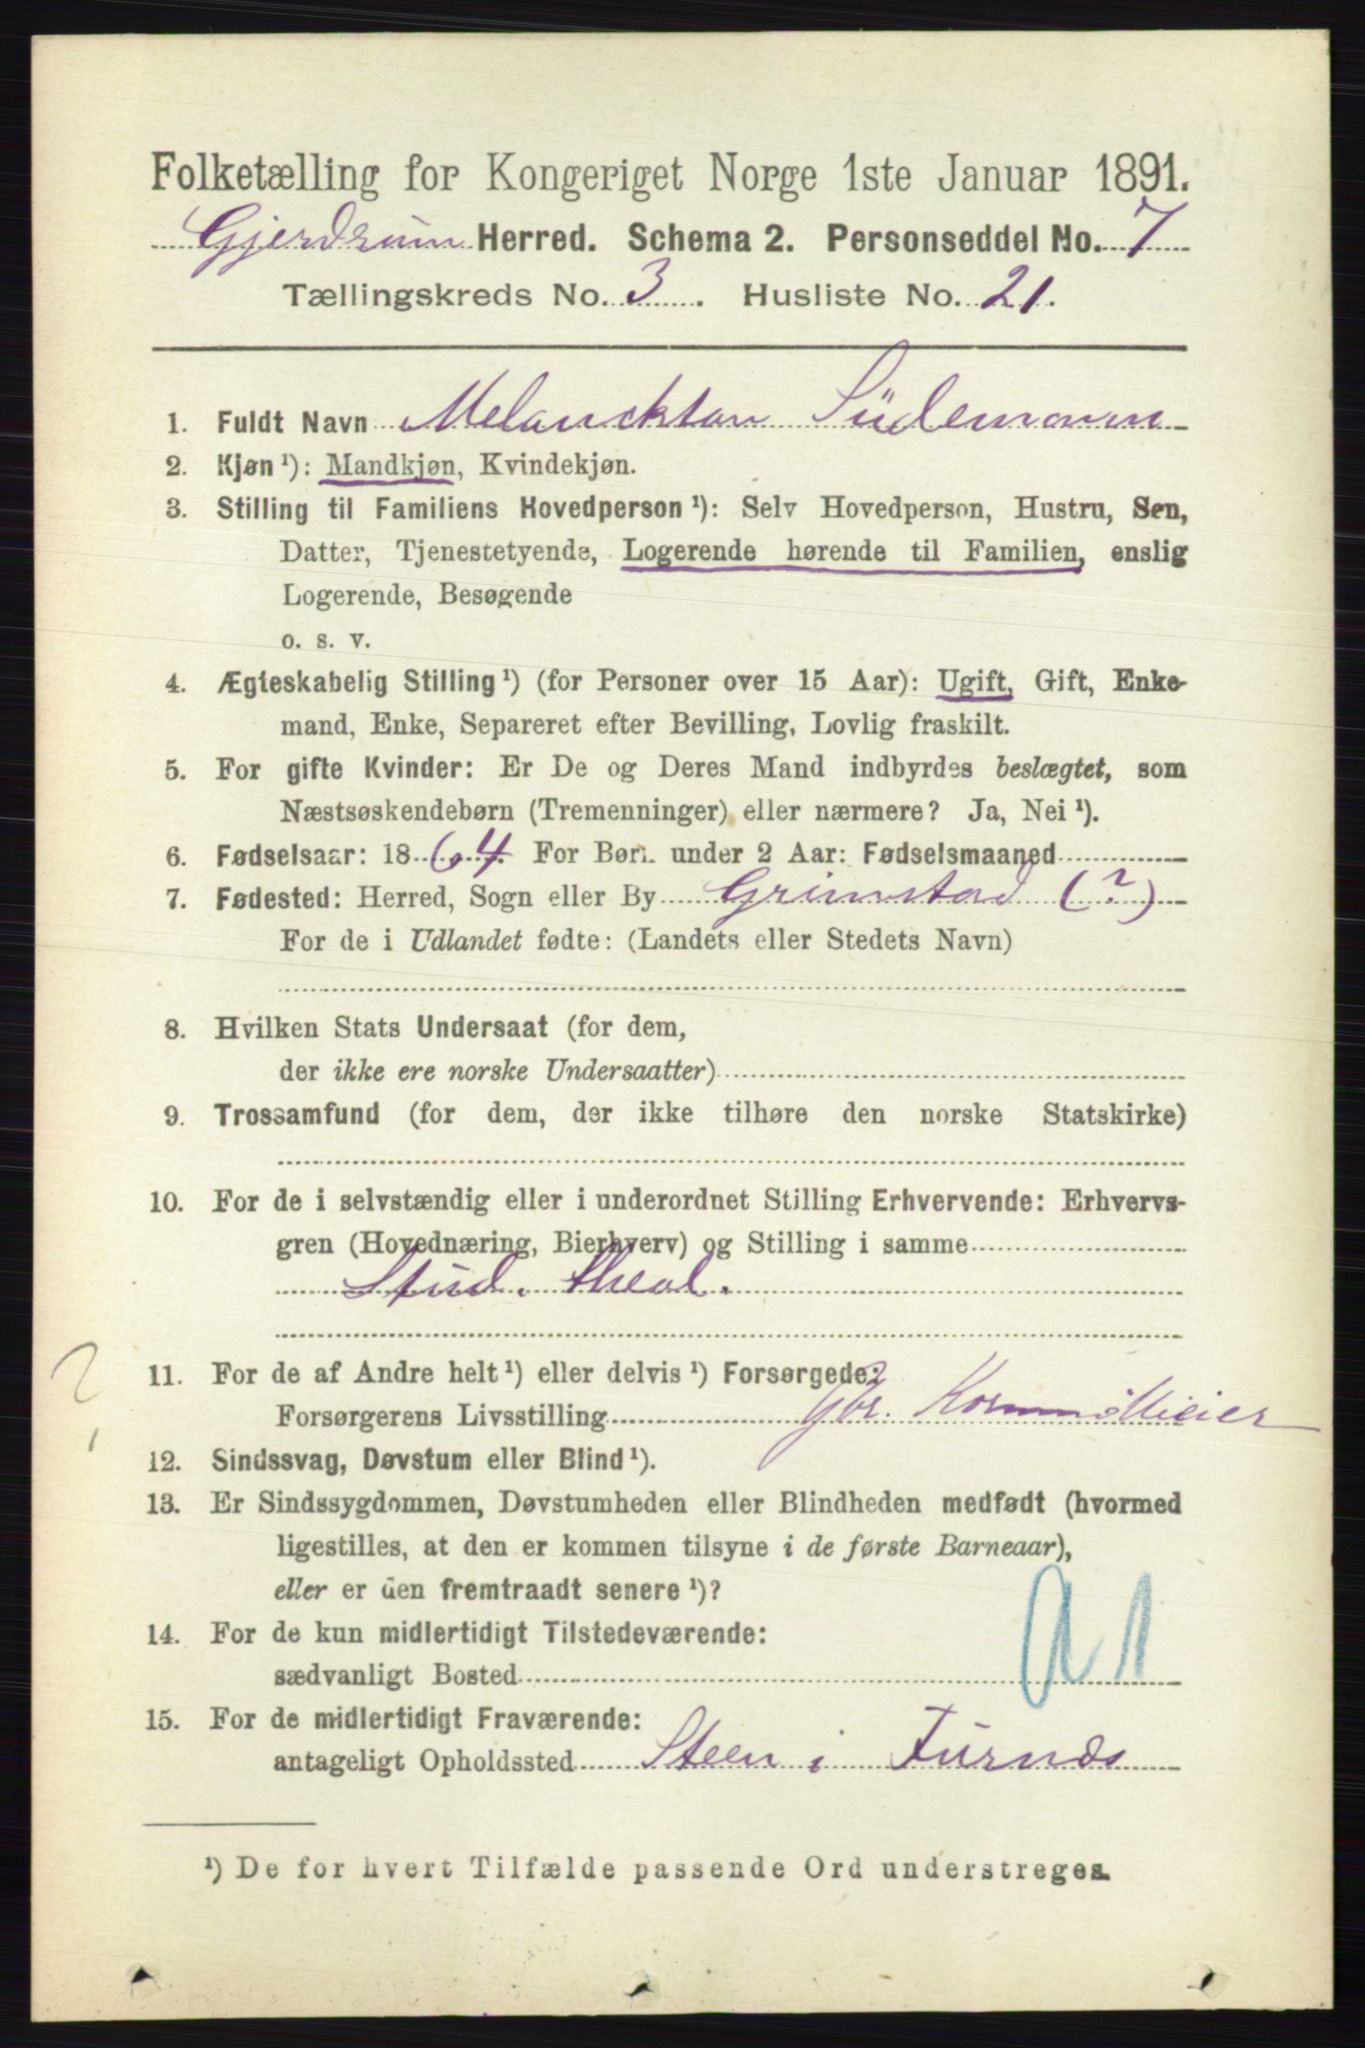 Folketælling for Kongeriget Norge 1ste Januar 1891.
Gjerdrum Herred. Schema 2. Personseddel No. 7
Tællingskreds No. 3. Husliste No. 21.
1. Fuldt Navn Melanckton Südemann
2. Kjøn¹): Mandkjøn, Kvindekjøn.
3. Stilling til Familiens Hovedperson¹): Selv Hovedperson, Hustru, Søn,
Datter, Tjenestetyende, Logerende hørende til Familien, enslig
Logerende, Besøgende
o. s. v.
4. Ægteskabelig Stilling¹) (for Personer over 15 Aar): Ugift, Gift, Enke-
mand, Enke, Separeret efter Bevilling, Lovlig fraskilt.
5. For gifte Kvinder: Er De og Deres Mand indbyrdes beslægtet, som
Næstsøskendebørn (Tremenninger) eller nærmere? Ja, Nei¹).
6. Fødselsaar: 1864. For Børn under 2 Aar: Fødselsmaaned
7. Fødested: Herred, Sogn eller By Grimstad (?)
For de i Udlandet fødte: (Landets eller Stedets Navn)
8. Hvilken Stats Undersaat (for dem,
der ikke ere norske Undersaatter)
9. Trossamfund (for dem, der ikke tilhøre den norske Statskirke)
10. For de i selvstændig eller i underordnet Stilling Erhvervende: Erhvervs-
gren (Hovednæring, Bierhverv) og Stilling i samme
Stud. theol.
?
11. For de af Andre helt¹) eller delvis¹) Forsørgede:
Forsørgerens Livsstilling Gbr.
12. Sindssvag, Døvstum eller Blind¹).
13. Er Sindssygdommen, Døvstumheden eller Blindheden medfødt (hvormed
ligestilles, at den er kommen tilsyne i de første Barneaar),
eller er den fremtraadt senere¹)?
14. For de kun midlertidigt Tilstedeværende:
sædvanligt Bosted
a 1
15. For de midlertidigt Fraværende:
antageligt Opholdssted Steen i Furnæs
¹) De for hvert Tilfælde passende Ord understreges.